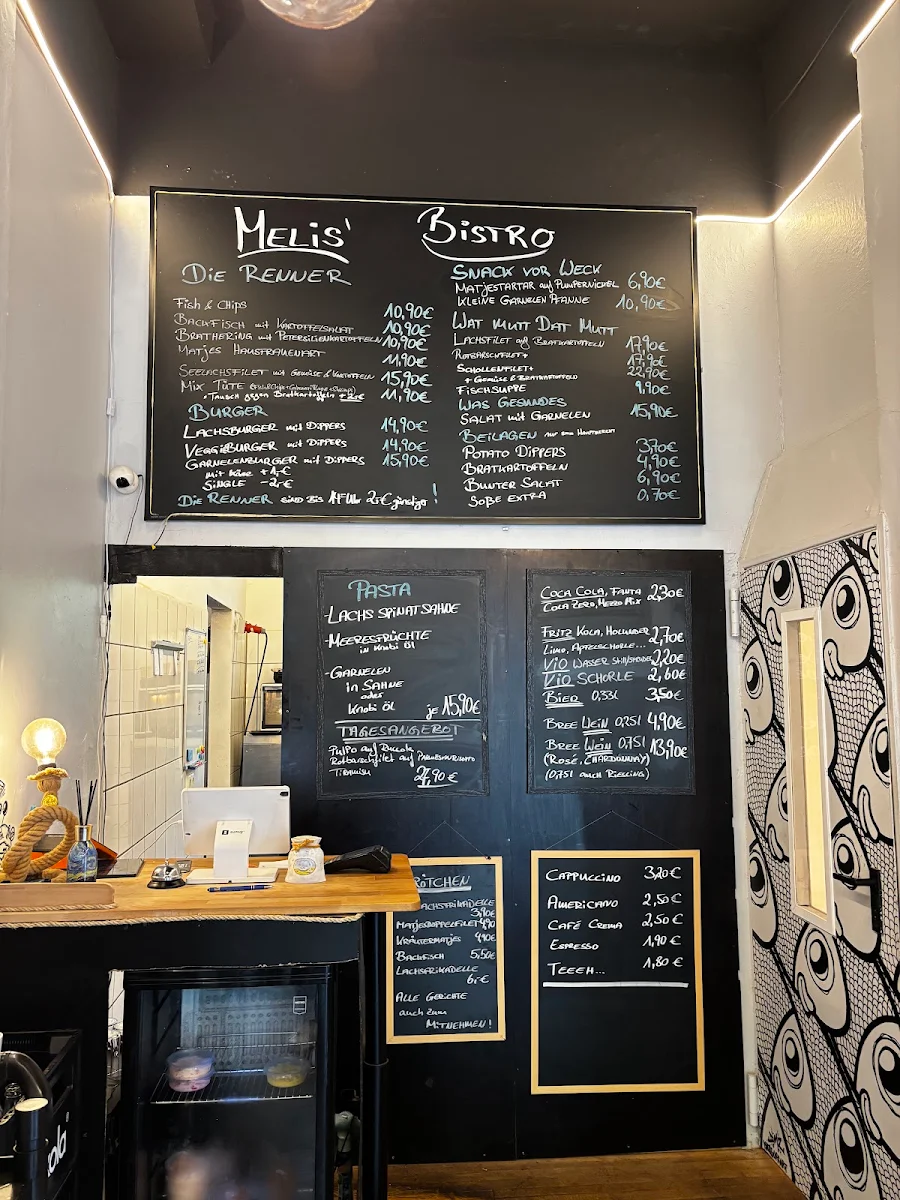 MELIS' BISTRO
DIE RENNER
FISH & CHIPS 10,90€
BACKFISCH mit KARTOFFELSALAT 10,90€
BRATHERING mit PETERSILIENKARTOFFELN 10,90€
MATJES HAUSFRAUENART 11,90€
SEELACHSFILET mit GEMÜSE & KARTOFFELN 15,90€
MIX TÜTE 11,90€
+ TAUSCH gegen Bratkartoffeln + 2€
BURGER
LACHSBURGER mit DIPPERS 14,90€
VEGGIEBURGER mit DIPPERS 14,90€
GARNELENBURGER mit DIPPERS 15,90€
mit Käse + 1,-€
SINGLE -2,-€
DIE RENNER SIND BIS 17 Uhr 2,-€ günstiger!
SNACK VOR WECK
MATJESTARTAR auf PUMPERNICKEL 6,90€
KLEINE GARNELEN PFANNE 10,90€
WAT MUTT DAT MUTT
LACHSFILET auf BRATKARTOFFELN 17,90€
ROTBARSCHFILET+ 17,90€
SCHOLLENFILET+ 22,90€
+ GEMÜSE & BRATKARTOFFELN
FISCHSUPPE 9,90€
WAS GESUNDES
SALAT mit GARNELEN 15,90€
BEILAGEN nur zum HAUPTGERICHT
POTATO DIPPERS 3,70€
BRATKARTOFFELN 4,90€
BUNTER SALAT 6,90€
SOßE EXTRA 0,70€
PASTA
-LACHS SPINAT SAHNE
-MEERESFRÜCHTE
in Knobi Öl
-GARNELEN
in SAHNE
oder
Knobi ÖL je 15,90€
TAGESANGEBOT
Pulpo auf Rucola
Rotbarschfilet auf
Tiramisu 27,90€
COCA COLA, FANTA 2,30€
COLA ZERO, MEZZO MIX
FRITZ KOLA, HOLUNDER 2,70€
LIMO, APFELSCHORLE...
VIO WASSER still/spritzig 2,20€
VIO SCHORLE 2,60€
BIER 0,33l 3,50€
BREE WEIN 0,25l 4,90€
BREE WEIN 0,75l 13,90€
(ROSÉ, CHARDONNAY)
(0,75l AUCH RIESLING)
RÖTCHEN
LACHSFRIKADELLE
3,90€
MATJESDOPPELFILET 4,90
KRÄUTERMATJES 4,90€
BACKFISCH 5,50€
LACHSFRIKADELLE
6,-€
ALLE GERICHTE
auch zum
MITNEHMEN!
CAPPUCCINO 3,20€
AMERICANO 2,50€
CAFÉ CREMA 2,50€
ESPRESSO 1,90€
TEEEH... 1,80€